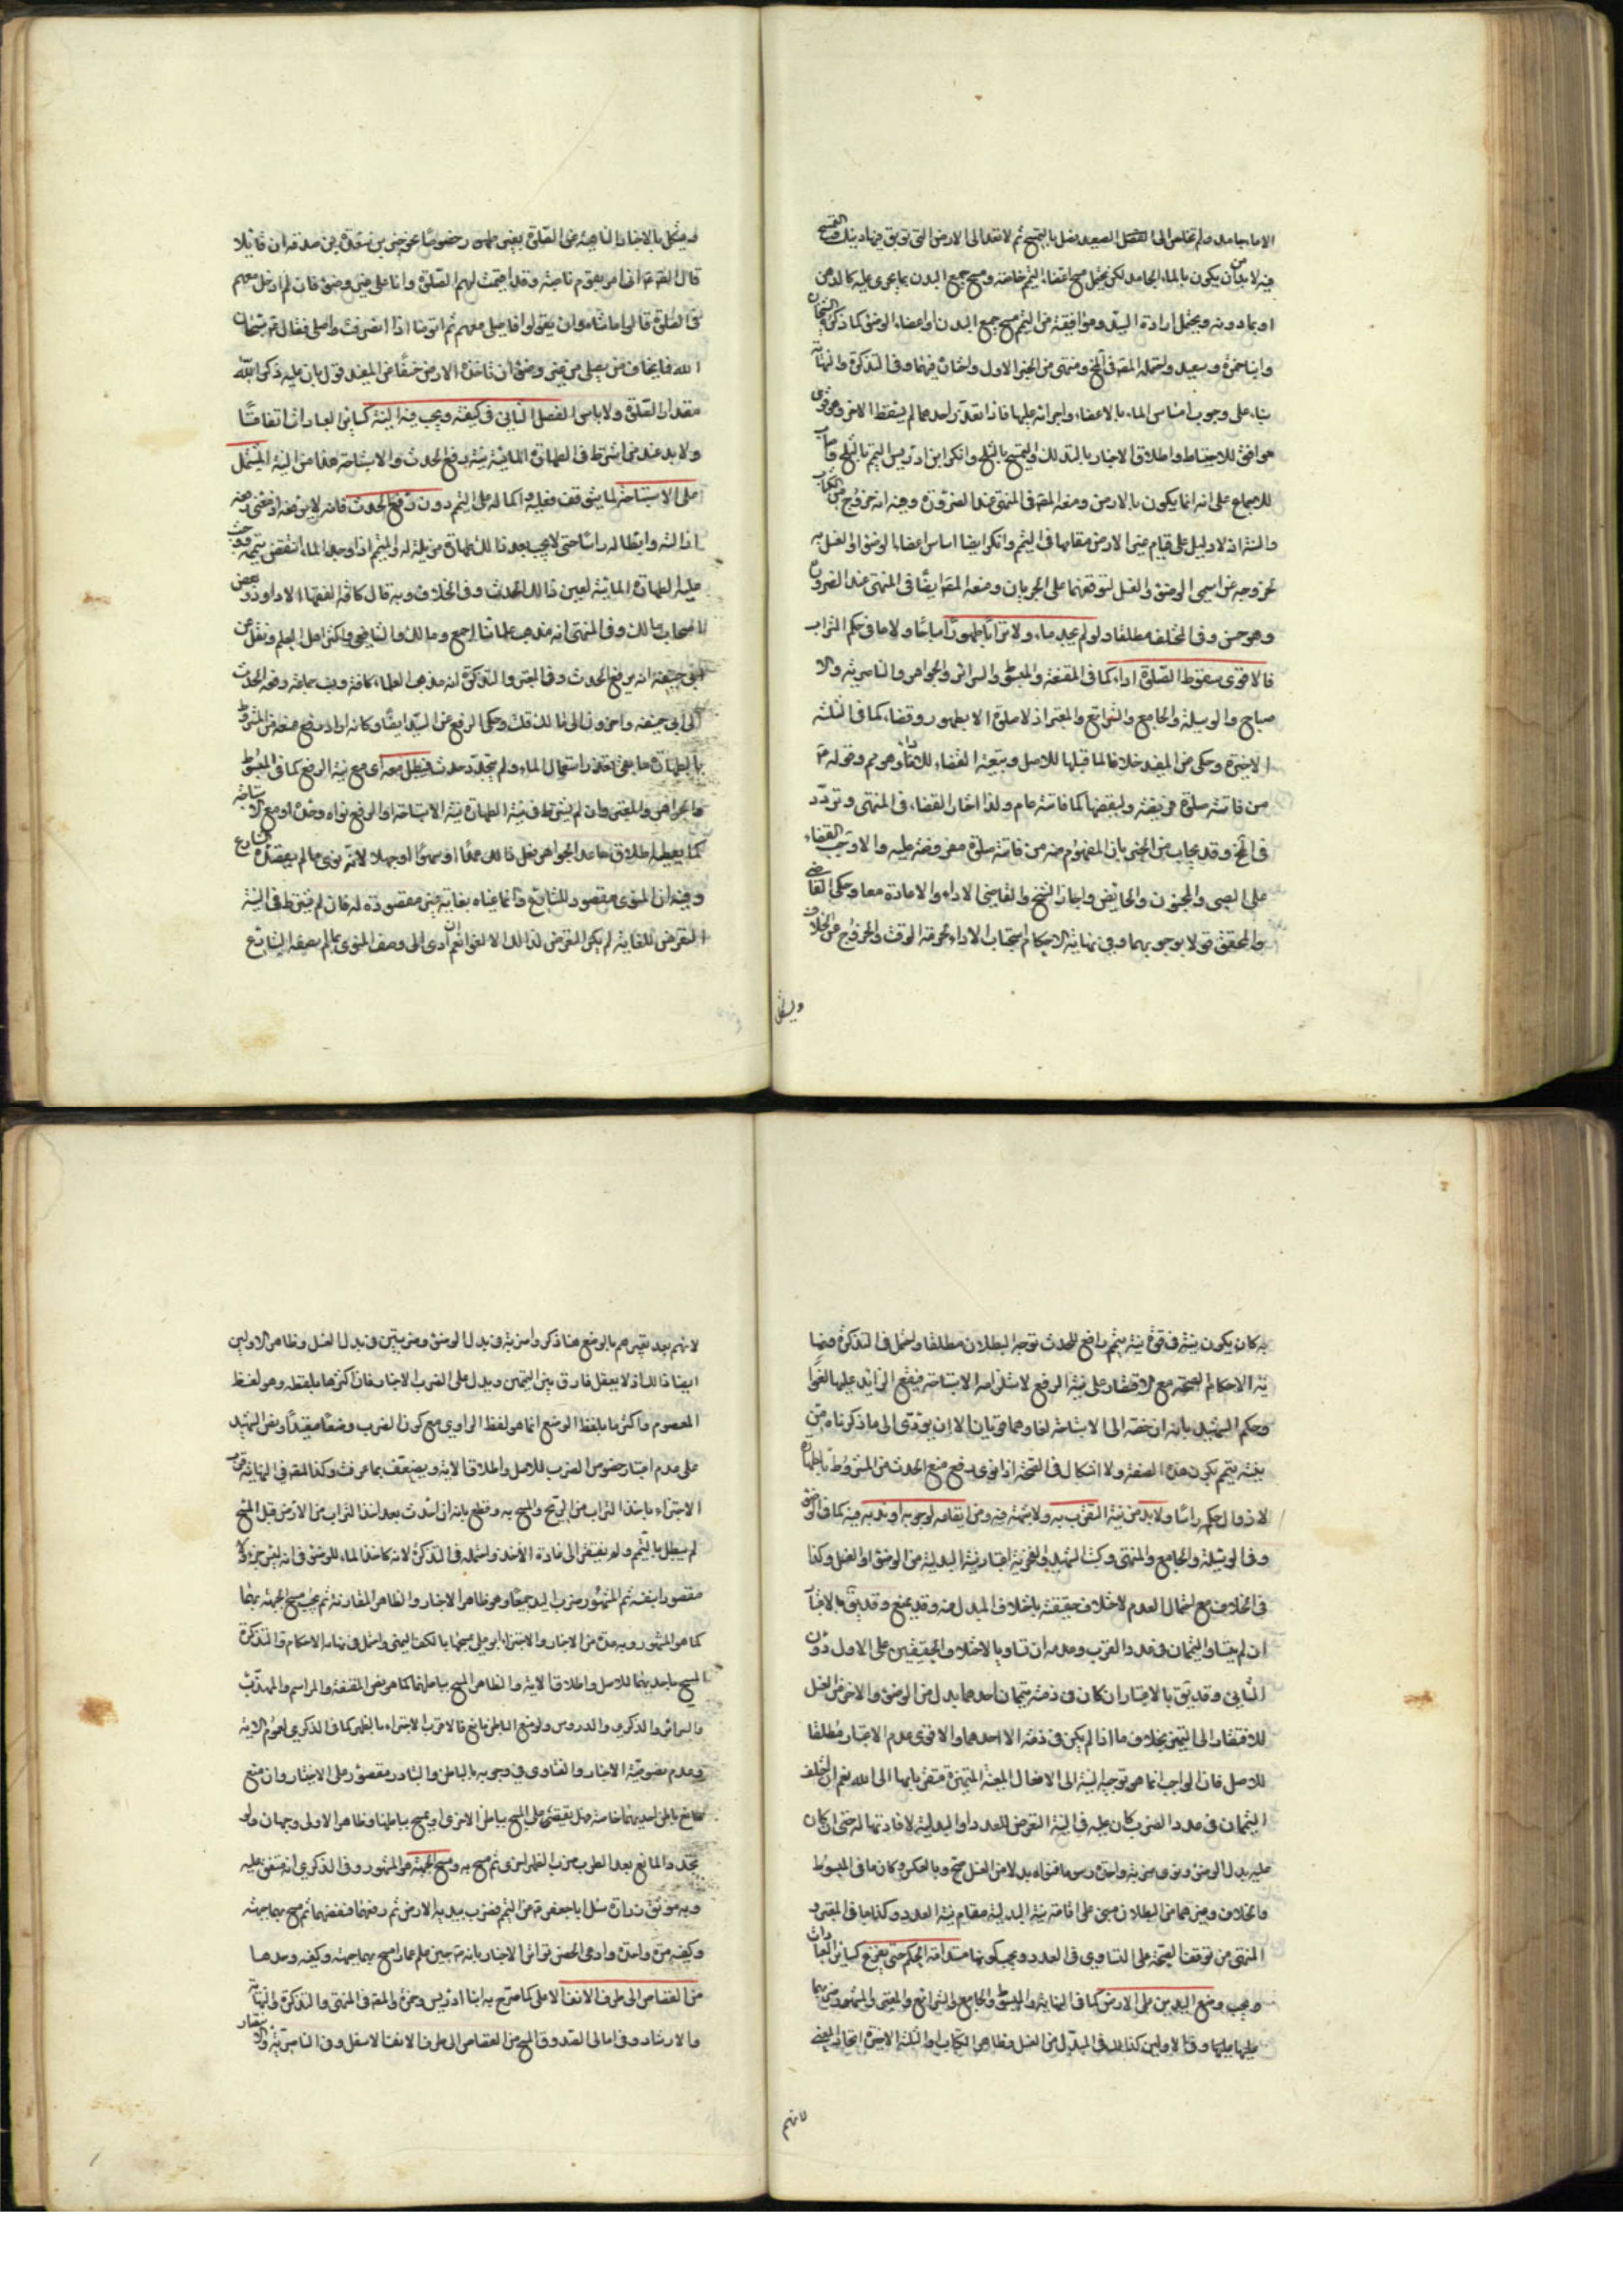 الا ماء جامد ولم يخلص الى الصعيد فصل بالتمسح ثم لا تعد الى الارض التى توبق فيها دينك والتمسح
فيه لا بد من ان يكون بالماء الجامد لكن يحتمل مسح اعضاء التيمم خاصة ومسح جميع البدن بما يجرى عليه كالدهن
او بما دونه ويحتمل ارادة السيد وموافقيه من التيمم مسح جميع البدن او اعضاء الوضوء كما ذكره الشيخان
وابنا حمزة وسعيد واحتمله المصنف فى التحرير ومنتهى من الخبر الاول والخان فيهما وفى التذكرة والنهاية
بناء على وجوب امساس الماء بالاعضاء واجرائه عليها فاذا تعذر احدهما لم يسقط الاخر وهو قوى
موافق للاحتياط واطلاق الاخبار بالتدلك والتمسح بالثلج وانكر ابن ادريس التيمم بالثلج
للاجماع على انه انما يكون بالارض ومنعه المصنف فى المنتهى عند الضرورة وجه انه خروج من الكتاب
والسنة اذ لا دليل على قيام غير الارض مقامها فى التيمم وانكر ايضا امساس اعضاء الوضوء او الغسل به
لخروجه عن اسمى الوضوء والغسل لتوقفهما على الجريان ومنعه المصنف ايضا فى المنتهى عند الضرورة
وهو حسن وفى المختلف مطلقا ولو لم يجد ماء ولا ترابا طهورا مباحا ولا ما فى حكم التراب
فالاقوى سقوط الصلوة اداء كما فى المقنعة والمبسوط والسرائر والجواهر والناصرية ولا
صباح والوسيلة والجامع والشرائع والمعتبر اذ لا صلوة الا بطهور وقضاء كما فى الثلثة
الاخيرة وحكى عن المفيد خلافا لما قبلها للاصل وتبعية القضاء للاداء وهو مم وقوله ع
من فاتته صلوة فريضة وليقضها كما فاتته عام ولذا اختار القضاء فى المنتهى وتردد
فى التحرير وقد يجاب عن الخبر بان المفهوم منه من فاتته صلوة مفروضة عليه والا وجب القضاء
على الصبى والمجنون والحائض واجاز الشيخ والقاضى الاداء والاعادة معا وحكى القاضى
والمحقق قولا بوجوبهما وفى نهاية الاحكام استحباب الاداء لحرمة الوقت والخروج عن الخلاف
ويشكل
ويشكل بالاخبار الناهية عن الصلوة بغير طهور خصوصا نحو خبر مسعدة بن صدقة ان قائلا
قال للصادق ع انى امر بقوم ناصبة وقد اقيمت لهم الصلوة وانا على غير وضوء فان لم ادخل معهم
فى الصلوة قالوا ما شاءوا ان يقولوا افاصلى معهم ثم اتوضأ اذا انصرفت واصلى فقال ع سبحان
الله فما يخاف من يصلى من غير وضوء ان تاخذه الارض خسفا عن المفيد قول بان عليه ذكر الله
مقدار الصلوة ولا باس الفصل الثانى فى كيفيته ويجب فيه النية كسائر العبادات اتفاقا
ولا بد عند من اشترط فى الطهارة المائية نية رفع الحدث والاستباحة هنا من النية المشتمل
على الاستباحة لما يتوقف فعله او كماله على التيمم دون رفع الحدث فانه لا يرفعه اذ معنى رفعه
ازالته وابطاله راسا حتى لا يجب بعد ذلك طهارة مزيلة له والتيمم اذا وجد الماء انتقض تيممه ووجبت
عليه الطهارة المائية لعين ذلك الحدث وفى الخلاف وبه قال كافة الفقهاء الا داود وبعض
اصحاب مالك وفى المنتهى انه مذهب علمائنا اجمع ومالك والشافعى واكثر اهل العلم ونقل عن
ابى حنيفة انه يرفع الحدث وفى المعتبر والتذكرة انه مذهب العلماء كافة ونسب جماعة رفعه الحدث
الى ابى حنيفة واخرون الى مالك قلت وحكى الرفع عن السيد ايضا وكانه اراد رفع منعه من المشروط
بالطهارة ما بقى تعذر استعمال الماء ولم يتجدد حدث فيبطل معه اى مع نية الرفع كما فى المبسوط
والجواهر والمعتبر وان لم يشترط فى نية الطهارة نية الاستباحة او الرفع نواه وحده او مع الاستباحة
كما يعطيه اطلاق ما عدا الجواهر فعل ذلك عمدا او سهوا او جهلا لانه نوى ما لم يقصده الشارع
وفيه ان المنوى مقصود للشارع وانما غياه بغاية غير مقصودة له فان لم يشترط فى النية
التعرض للغاية لم يكن التعرض لذلك الا لغوا نعم ان ادى الى وصف المنوى بما لم يصفه الشارع
به كان يكون نيته فى قوة نية تيمم رافع للحدث توجه البطلان مطلقا واحتمل فى التذكرة ونها
ية الاحكام الصحة مع الاقتصار على نية الرفع لاستلزامه الاستباحة فيقع الزائد عليها لغوا
وحكم الشهيد بانه ان ضمه الى الاستباحة لغا وهما قويان الا ان يؤدى الى ما ذكرناه من
نية تيمم يكون هذه الصفة ولا اشكال فى الصحة اذا نوى رفع منع الحدث من المشروط بالطهارة
لا زوال حكمه راسا ولا بد من نية التقرب به ولا شبهة فيه ومن ايقاعه لوجوبه او ندبه فيه كما فى الوضوء
وفى الوسيلة والجامع والمنتهى وكتب الشهيد والجعفرية اعتبار نية البدلية من الوضوء او الغسل وكذا
فى الخلاف مع احتمال العدم لاختلاف حقيقته باختلاف المبدل منه وقد يمنع وقد يق بالاعتبار
ان لم يتساو التيممان فى عدد الضرب وعدمه ان تساويا لاختلاف الحقيقتين على الاول دون
الثانى وقد يق بالاعتبار ان كان فى ذمته تيممان احدهما بدل من الوضوء والاخر من الغسل
للافتقار الى التمييز بخلاف ما اذا لم يكن فى ذمته الا احدهما والاقوى عدم الاعتبار مطلقا
للاصل فان الواجب انما هو توجيه النية الى الافعال المعينة المتميزة متقربا بها الى الله نعم ان اختلف
التيممان فى عدد الضرب كان عليه فى النية التعرض للعدد او البدلية لافادتها له حتى ان كان
عليه بدل الوضوء ونوى ضربة واحدة وسها فنواه بدلا من الغسل صح وبالعكس وكان ما فى المبسوط
والخلاف وغيرهما من البطلان مبنى على اقامة نية البدلية مقام نية العدد وكذا ما فى المعتبر و
المنتهى من توقف الصحة على التساوى فى العدد ويجب كونها مستدامة الحكم حتى يفرغ كسائر العبادات
ويجب وضع اليدين على الارض كما فى النهاية والمبسوط والجامع والشرائع والمعتبر والمستحب ضربهما
عليها عليهما وفى الاولين كذلك فى المبدل من الغسل وظاهر الكتاب والثلثة الاخيرة اتحاد المعنى
لانهم
لانهم بعد تعبيرهم بالوضع هنا ذكروا ضربة فى بدل الوضوء وضربتين فى بدل الغسل وظاهر الاولين
ايضا ذلك اذ لا يعقل فارق بين التيممين ويدل على الضرب الاخبار فان اكثرها بلفظه وهو لفظ
المعصوم واكثر ما بلفظ الوضع انما هو لفظ الراوى مع كون الضرب وضعا مقيدا ونص الشهيد
على عدم اعتبار خصوص الضرب للاصل واطلاق الاية ويضعف بما عرفت وكذا المصنف فى النهاية
الاجتزاء باخذ التراب من الريح والمسح به وقطع بانه ان احدث بعد اخذ التراب من الارض قبل المسح
لم يبطل بالتيمم ولم يفتقر الى اعادة الاخذ واحتمله فى التذكرة لانه كاخذ الماء للوضوء فى انه ليس جزء ولا
مقصودا بنفسه ثم المشهور ضرب اليدين معا وهو ظاهر الاخبار والظاهر المقارنة ثم يجب مسح الجبهة بهما
كما هو المشهور وبه عدة من الاخبار والاجتزاء ابو على مسحها بالكف اليمنى واحتمل فى نهاية الاحكام والتذكرة
المسح باحديهما للاصل واطلاق الاية والظاهر المسح بباطنهما كما هو نص المقنعة والمراسم والمهذب
والسرائر والذكرى والدروس ولو منع الباطن مانع فالاقرب الاجتزاء بالظهر كما فى الذكرى لعموم الاية
وعدم نصوصية الاخبار والفتاوى فى وجوبه بالباطن والتبادر مقصور على الاختيار وان منع
مانع باطن احديهما خاصة فهل يقتصر على المسح بباطن الاخرى او يمسح بباطنها وظاهر الاولى وجهان ولو
تجدد المانع بعد الضرب ضرب الظهر اخرى ثم مسح به ومسح الجبهة هو المشهور وفى الذكرى انه متفق عليه
وبه موثق زرارة سئل ابا جعفر ع عن التيمم فضرب بيديه الارض ثم رفعهما فنفضهما ثم مسح بهما جبهته
وكفيه مرة واحدة وادعى الحسن تواتر الاخبار بانه ع حين علم عمارا مسح بهما جبهته وكفيه وحدها
من القصاص الى طرف الانف الاعلى كما صرح به ابنا ادريس وحمزة والمصنف فى المنتهى والتذكرة والنهاية
والارشاد وفى امالى الصدوق المسح من القصاص الى طرف الانف الاسفل وفى الناصرية والانتصار